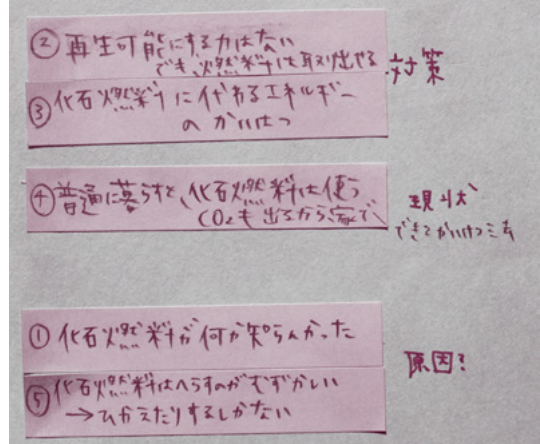 ② 再生可能にする力はない
でも、燃料は取り出せる
対策
③ 化石燃料に代わるエネルギー
のかいはつ
④ 普通に暮らすと、化石燃料は使う
CO2も出るから、家で、
現状
できる
① 化石燃料が何か知らんかった
原因?
⑤ 化石燃料はへらすのがむずかしい
→ひかえたりするしかない